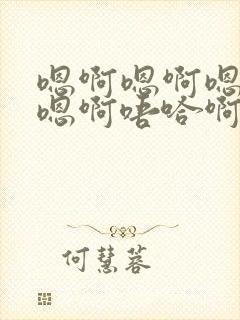 嗯啊嗯啊嗯
嗯啊唔哈啊
何慧蓉